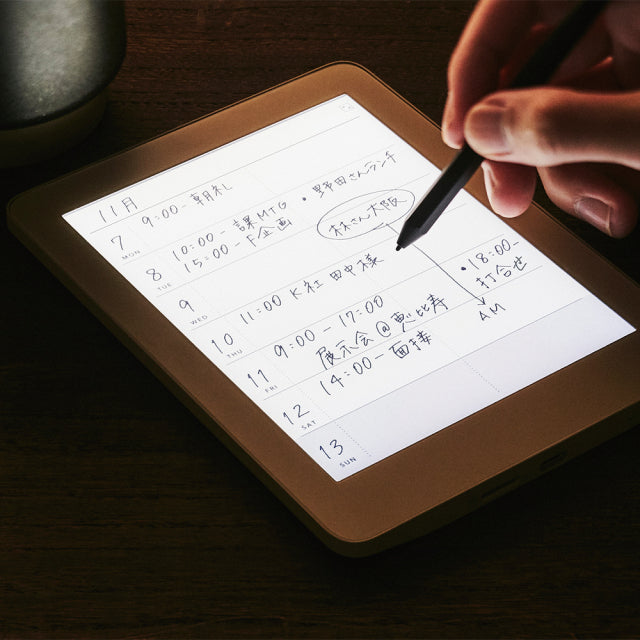 11月
7 MON 9:00- 朝礼
8 TUE 10:00- 課MTG ・野田さんランチ
15:00- F企画
9 WED 林さん大阪
10 THU 11:00 K社 田中様
11 FRI 9:00 - 17:00 ・18:00-
展示会@恵比寿 打合せ
12 SAT 14:00- 面接 AM
13 SUN